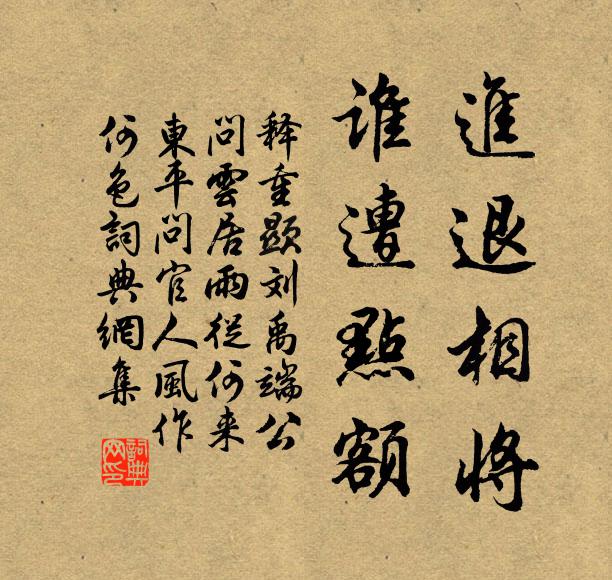 進退相將
誰遭點額
释重顯刘禹端公
問雲居雨從何来
東平問官人風作
何色詞典網集
詞典网印